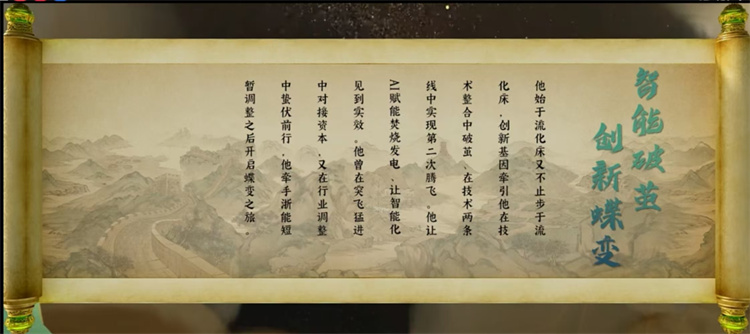 智能破茧
创新蝶变
他始于流化床又不止步于流
化床，创新基因牵引他在技
术整合中破茧、在技术两条
线中实现第二次腾飞。他让
AI赋能焚烧发电、让智能化
见到实效。他曾在突飞猛进
中对接资本、又在行业调整
中蛰伏前行，他牵手浙能短
暂调整之后开启蝶变之旅。